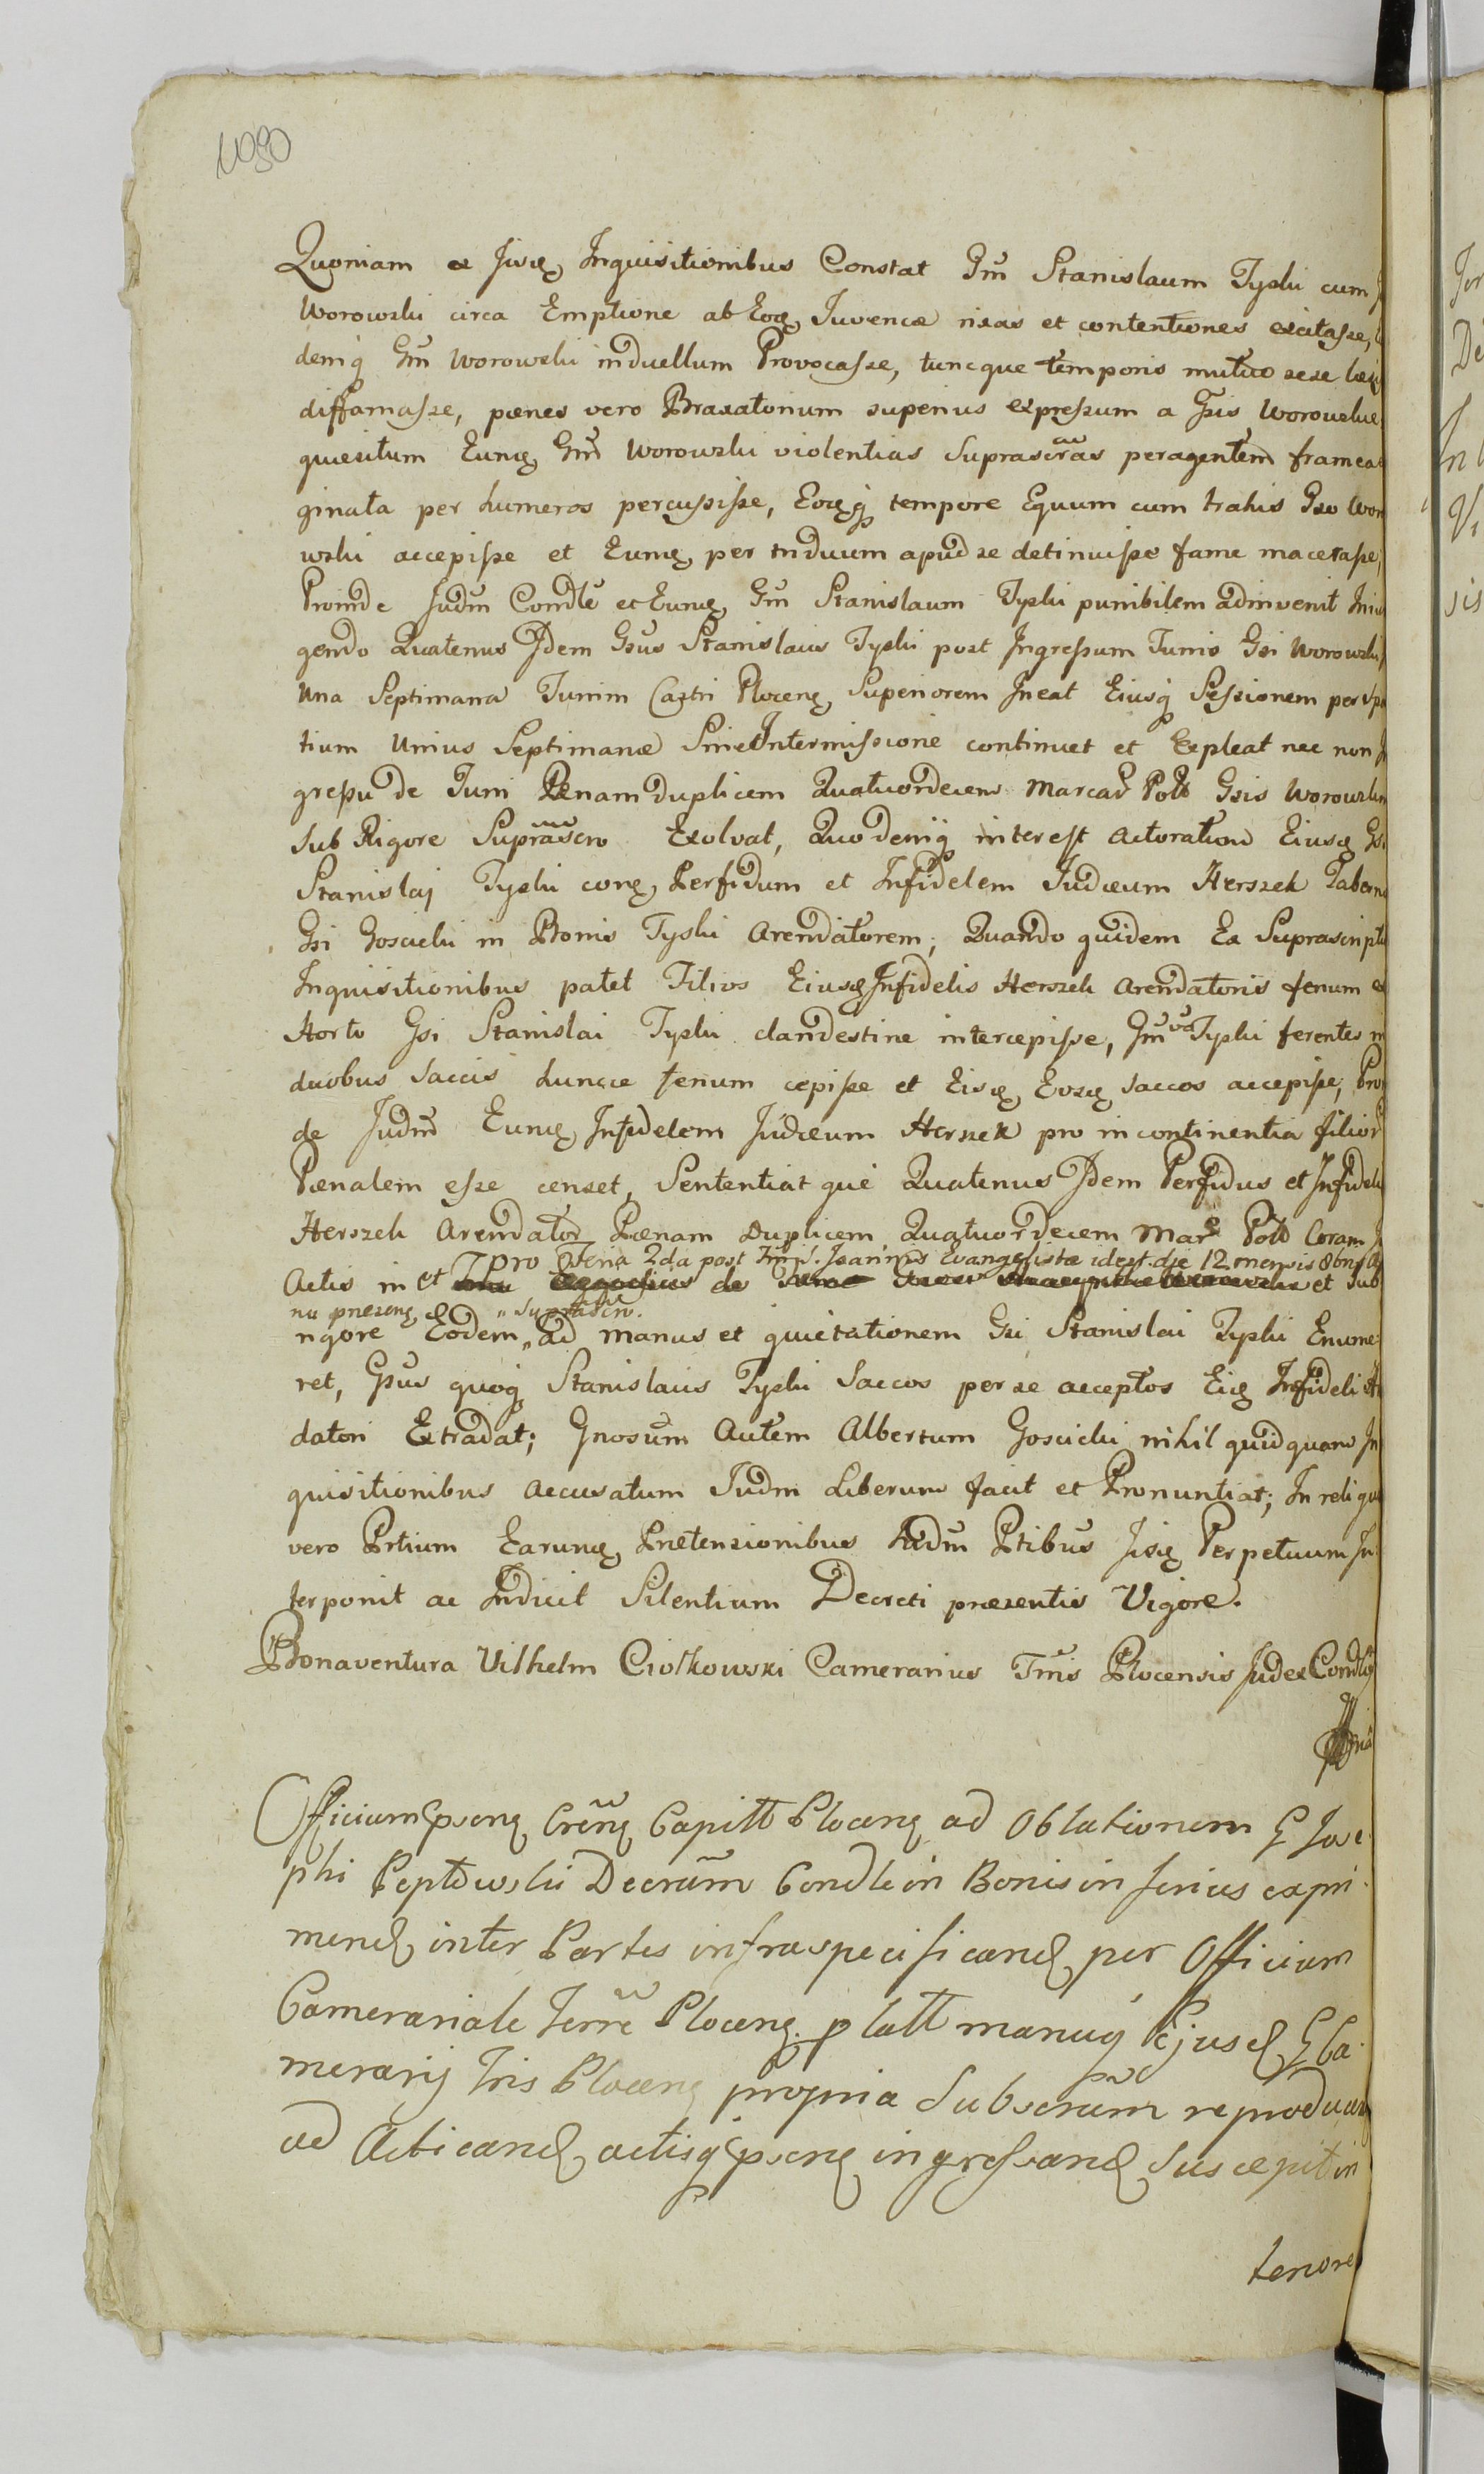 1090
Quoniam ex Iisq Inquisitionibus Constat Gm̃ Stanislaum Tyski cum
Worowski circa Emptione ab Eoq Juvencæ rixas et contentiones excitasse,
deniq Gm̃ Worowski in duellum Provocasse, tuncque temporis mutuo sese
diffamasse, pœnes vero Braxatorium superius expressum a Gsis Worowskie
quæsitum Eumq Gm̃ Worowski violentias Suprascr̃as peragentem framea
ginata per humeros percussisse, Eoqq tempore Equum cum trahis Gso Wor
wski accepisse et Eumq per triduum apud se detinuisse fame macerasse,
Proinde Judm̃ Condle et Eumq Gm̃ Stanislaum Tyski punibilem adinvenit Iniu
gendo Quatenus Idem Gsus Stanislaus Tyski post Ingressum Turris Gsi Worowski
Una Septimana Turrim Castri Plocenq Superiorem Ineat Eiusq Sessionem per spa
tium Unius Septimanæ Sine Intermissione continuet et Expleat nec non
gressu de Turri Pœnam duplicem Quatuordecem Marcar Poll Gsis Worowskim
Sub Rigore Suprascro Exolvat, Quo deniq interest actoratum Eiusq Gsi
Stanislaj Tyski conq Perfidum et Infidelem Judæum Herszek Tabern
Gsi Goscicki in Bonis Tyski Arendatorem; Quando quidem Ex Suprascriptis
Inquisitionibus patet Filios Eiusq Infidelis Herszek Arendatoris fenum ex
Horto Gsi Stanislai Tyski clandestine intercepisse, Gm̃ vo Tyski ferentes in
duobus Saccis huncce fenum cepisse et Eisq Eosq Saccos accepisse, Pro
de Judm̃ Eumq Infidelem Judæum Herszek pro incontinentia filior
Pœnalem esse censet, Sententiat que Quatenus Idem Perfidus et Infidelis
Herszek Arendator Pœnam Duplicem Quatuordecem Mar Poll Coram
pro Feria 2da post Joannis Evangelistæ idest die 12 mensis 8bris
Actis in et de et sub
nu præsenq " Suprascr̃.
rigore Eodem " ad manus et quietationem Gsi Stanislai Tyski Enume
ret, Gsus quoq Stanislaus Tyski Saccos per se acceptos Eiq Infideli
datori Extradat; Gnosum Autem Albertum Goscicki nihil quidquam In
quisitionibus accusatum Judm Liberum facit et Pronuntiat; In reliquis
vero Prtium Earumq Prætensionibus Judm̃ Ptibus Iisq Perpetuum In
terponit ac Indicit Silentium Decreti præsentis Vigore.
Bonaventura Vilhelm Ciołkowski Camerarius Tr̃ris Plocensis Judex Condlis
Officium Præsenq Crenq Capitt Plocenq ad Oblationem G Jose
phi Peplowski Decretum Condle in Bonis inferius expri
mend inter Partes infraspecificand per Officium
Camerariale Terræ Plocenq p latt manuq Ejusd G Ca
merarij Tris Plocenq propria Subscram reproduc
ad Acticand actisq præsenq ingrossand Suscepit in
tenore